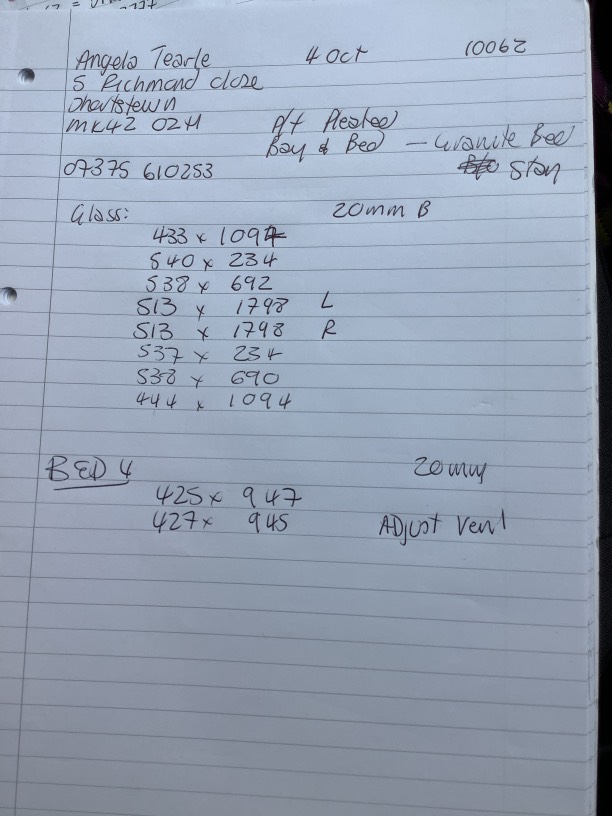 Angela Tearle 4 Oct 10062
5 Richmond Close
Shortstown
MK42 0
P/f Pleated
Bay & Bed — Granite Bed
Stay
07375 610253
Glass: 20mm B
433 x 1094
540 x 234
538 x 692
513 x 1798 L
513 x 1798 R
537 x 234
538 x 690
444 x 1094
BED 4 20mm
425 x 947
427 x 945 ADjust Vent